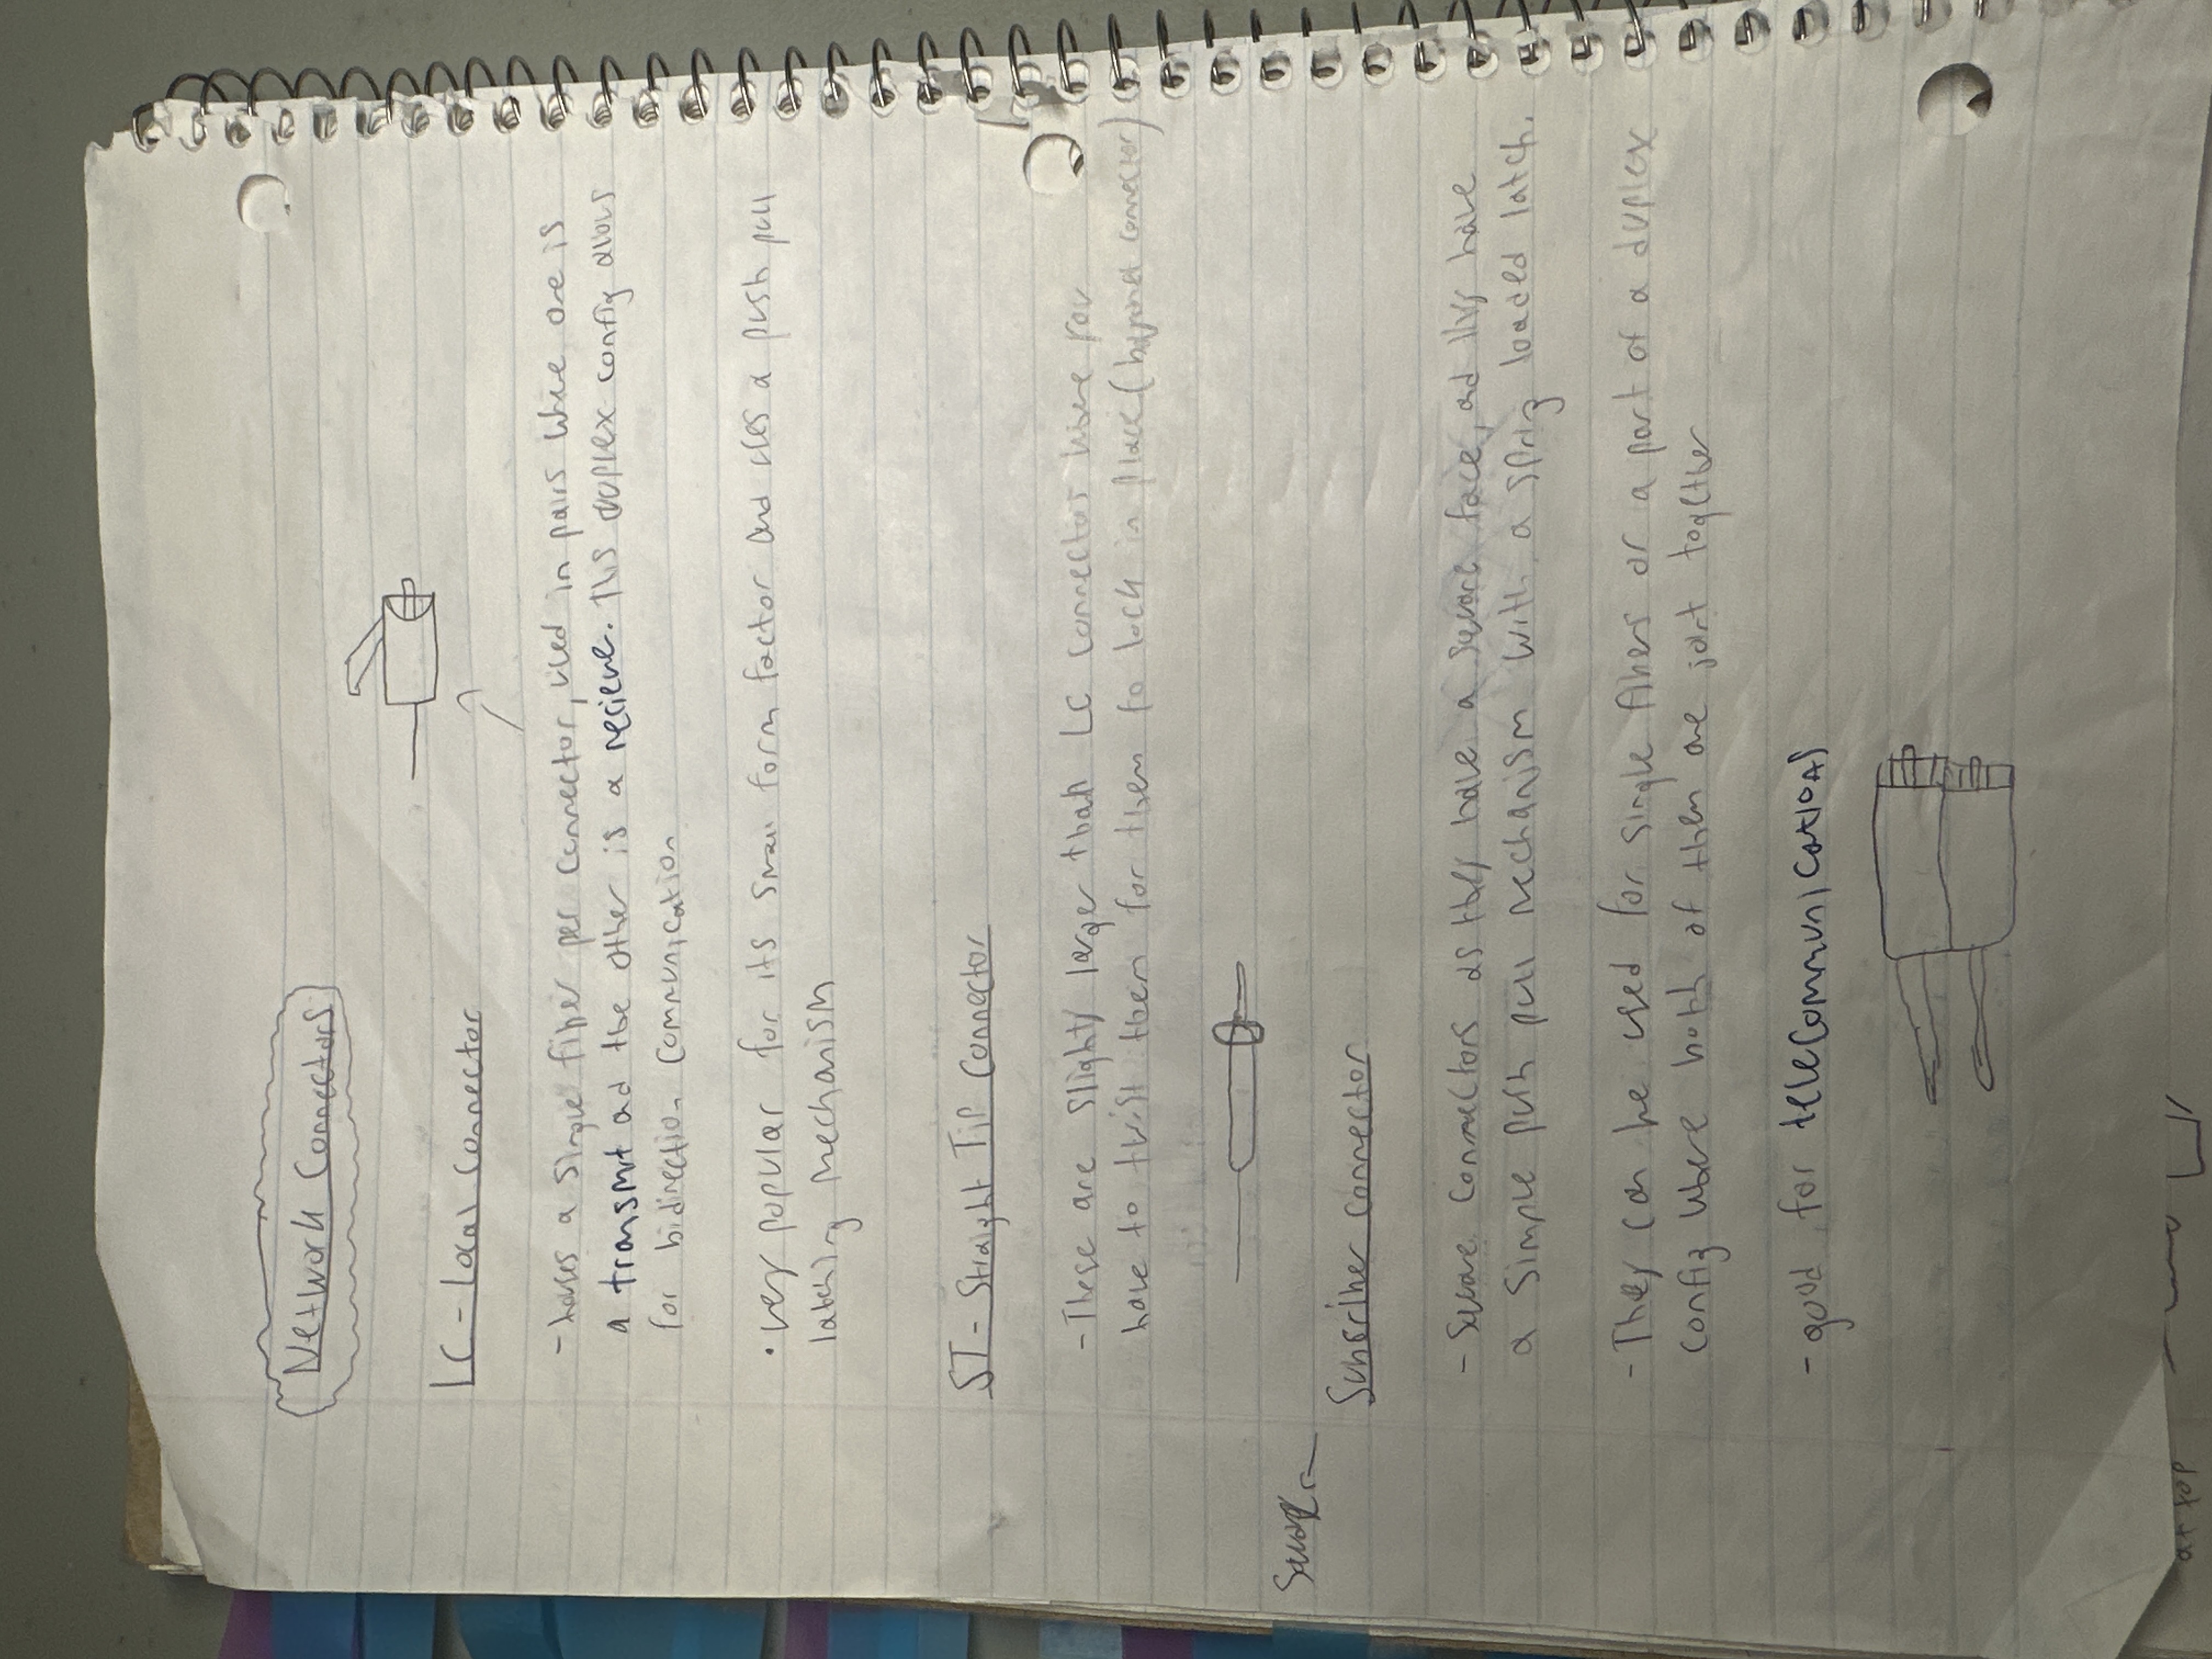 Network Connectors
LC - Local Connector
- houses a single fiber per connector, used in pairs where one is
a transmit ad the other is a recieve. This duplex config allows
for bidirection communication
• very popular for its small form factor and uses a push pull
latching mechanism
ST - Straight Tip Connector
- These are slightly larger than LC connectors where you
have to twist them for them to lock in place (bayonet connector)
Square
Subscriber connector
- Square connectors as they have a square face, ad they have
a simple push pull mechanism with a spring loaded latch.
- They can be used for single fibers or a part of a duplex
config where both of them are joint together
- good for telecommunications
at top